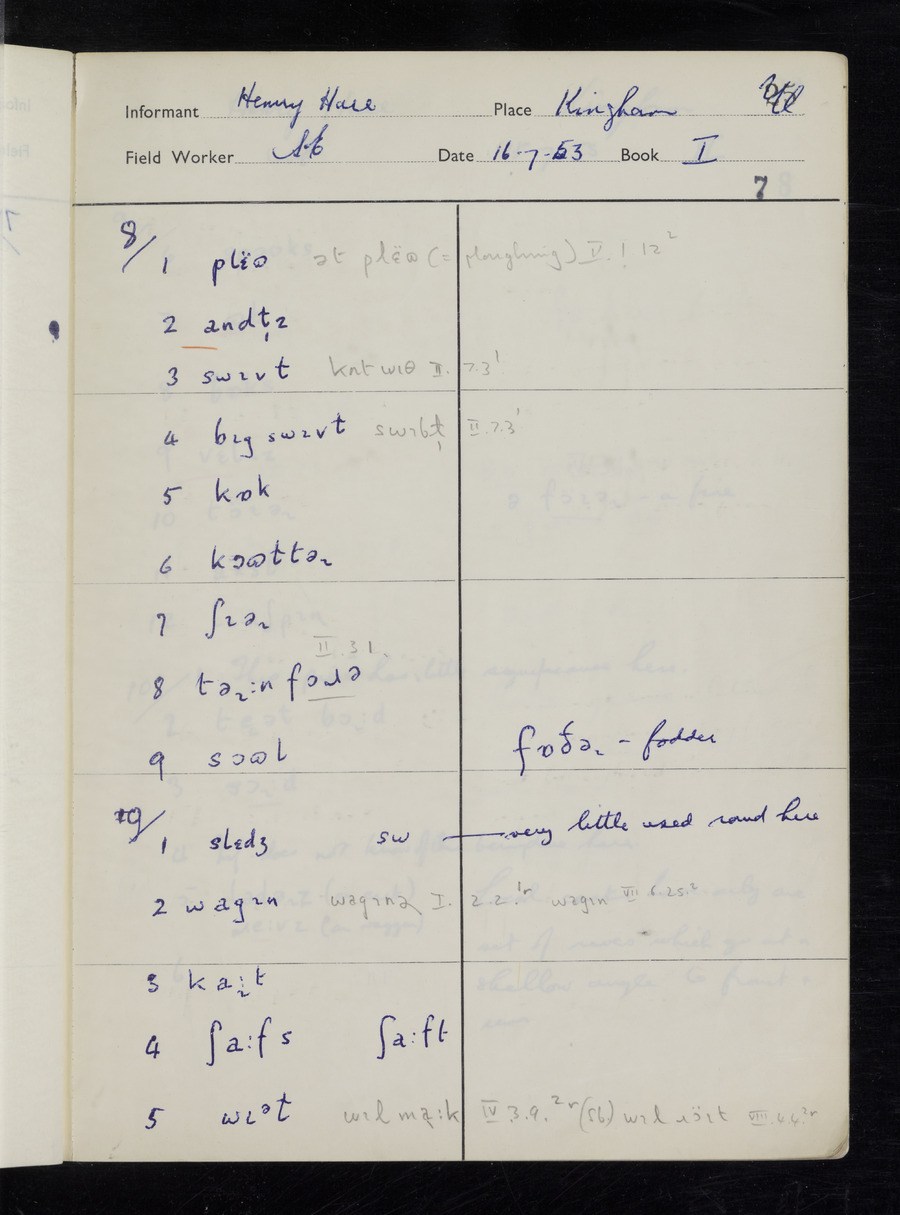 Informant Henry Place Kingham
Field Worker Date 16-7-53 Book I
7
8/ 1 plɛ̈ɷ ət plɛ̈ɷ (= ploughing) V. 1. 12²
2 andt̩ɪz
3 swɪvt kʌt wɪθ II. 7.3¹
4 bɪg swɪvt II.7.3¹
5 kɒk
6 kɔɷttəɽ
7 ʃɪəɽ
II. 3 1.
8 təɽ:n fɔɹə
9 sɔɷl fɒðəɽ – fodder
9/ 1 slɛdʒ sw very little used round here
2 wagɪn wagɪnz I. 2.2.¹ʳ wagɪn VII 6.25.²
3 kaɽ:t
4 ʃa:fs ʃa:ft
5 wɪᵊt wɪl ma:k IV 3.9.²ʳ (sb) wɪl VIII 4.4.²ʳ